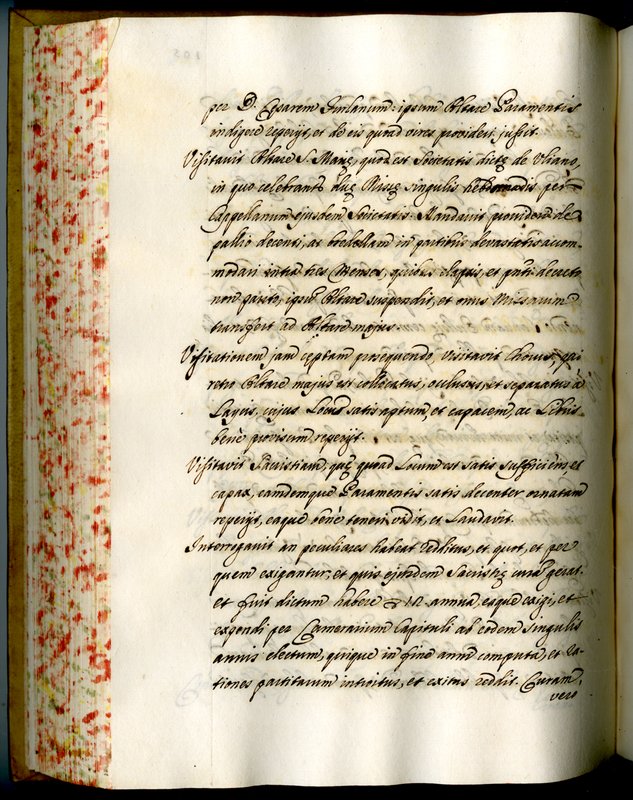 per D. Cęsarem Furlanum: ipsum Altare Paramentis
indigere reperijt, et de eis quoad vires provideri jussit.
Visitavit Altare S. Marię, quod est Societatis dictę de Uliano,
in quo celebrant duę Missę singulis hebdomadis per
Cappellanum ejusdem Societatis. Mandavit provideri de
pallio decenti, ac bredellam in partibus devastatis accom-
modari intra tres Menses, quibus elapsis, et pnti decreto
non parito, ipsum Altare suspendit, et onus Missarum
transfert ad Altare majus.
Visitationem jam cęptam prosequendo, visitavit Chorum, qui
retro Altare majus est collocatus, occlusus, et separatus à
Laycis, cujus Locum satis aptum, et capacem, ac Sedibus
benè provisum reperijt.
Visitavit Sacristiam, quę quoad Locum est satis sufficiens et
capax, eamdemque Paramentis satis decenter ornatam
reperijt, eaque benè teneri vidit, et laudavit.
Interrogavit an peculiares habeat redditus, et quot, et per
quem exigantur, et quis ejusdem Sacristię curam gerat.
et fuit dictum habere 12 annua, eaque exigi, et
exigendi per Camerarium Capituli ab eodem singulis
annis electum, quique in fine anni computa, et ra-
tiones partitarum introitus, et exitus reddit. Curam
vero